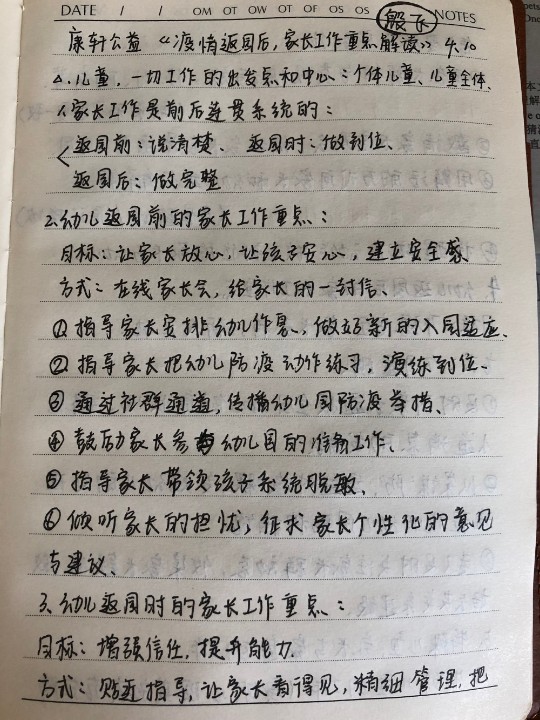 DATE / / OM OT OW OT OF OS OS NOTES
殷飞
康轩公益《疫情返园后,家长工作重点解读》4.10
△.儿童,一切工作的出发点和中心:个体儿童、儿童全体.
1.家长工作是前后连贯系统的:
返园前:说清楚、 返园时:做到位、
返园后:做完整
2.幼儿返园前的家长工作重点:
目标:让家长放心,让孩子安心,建立安全感
方式:在线家长会,给家长的一封信、
① 指导家长安排幼儿作息,做好新的入园适应、
② 指导家长把幼儿防疫动作练习,演练到位、
③ 通过社群通道,传播幼儿园防疫举措、
④ 鼓励家长参与幼儿园的工作、
⑤ 指导家长带领孩子系统脱敏、
⑥ 倾听家长的担忧,征求家长个性化的意见
与建议、
3.幼儿返园时的家长工作重点:
目标:增强信任,提升能力.
方式:贴近指导,让家长看得见,精细管理,把